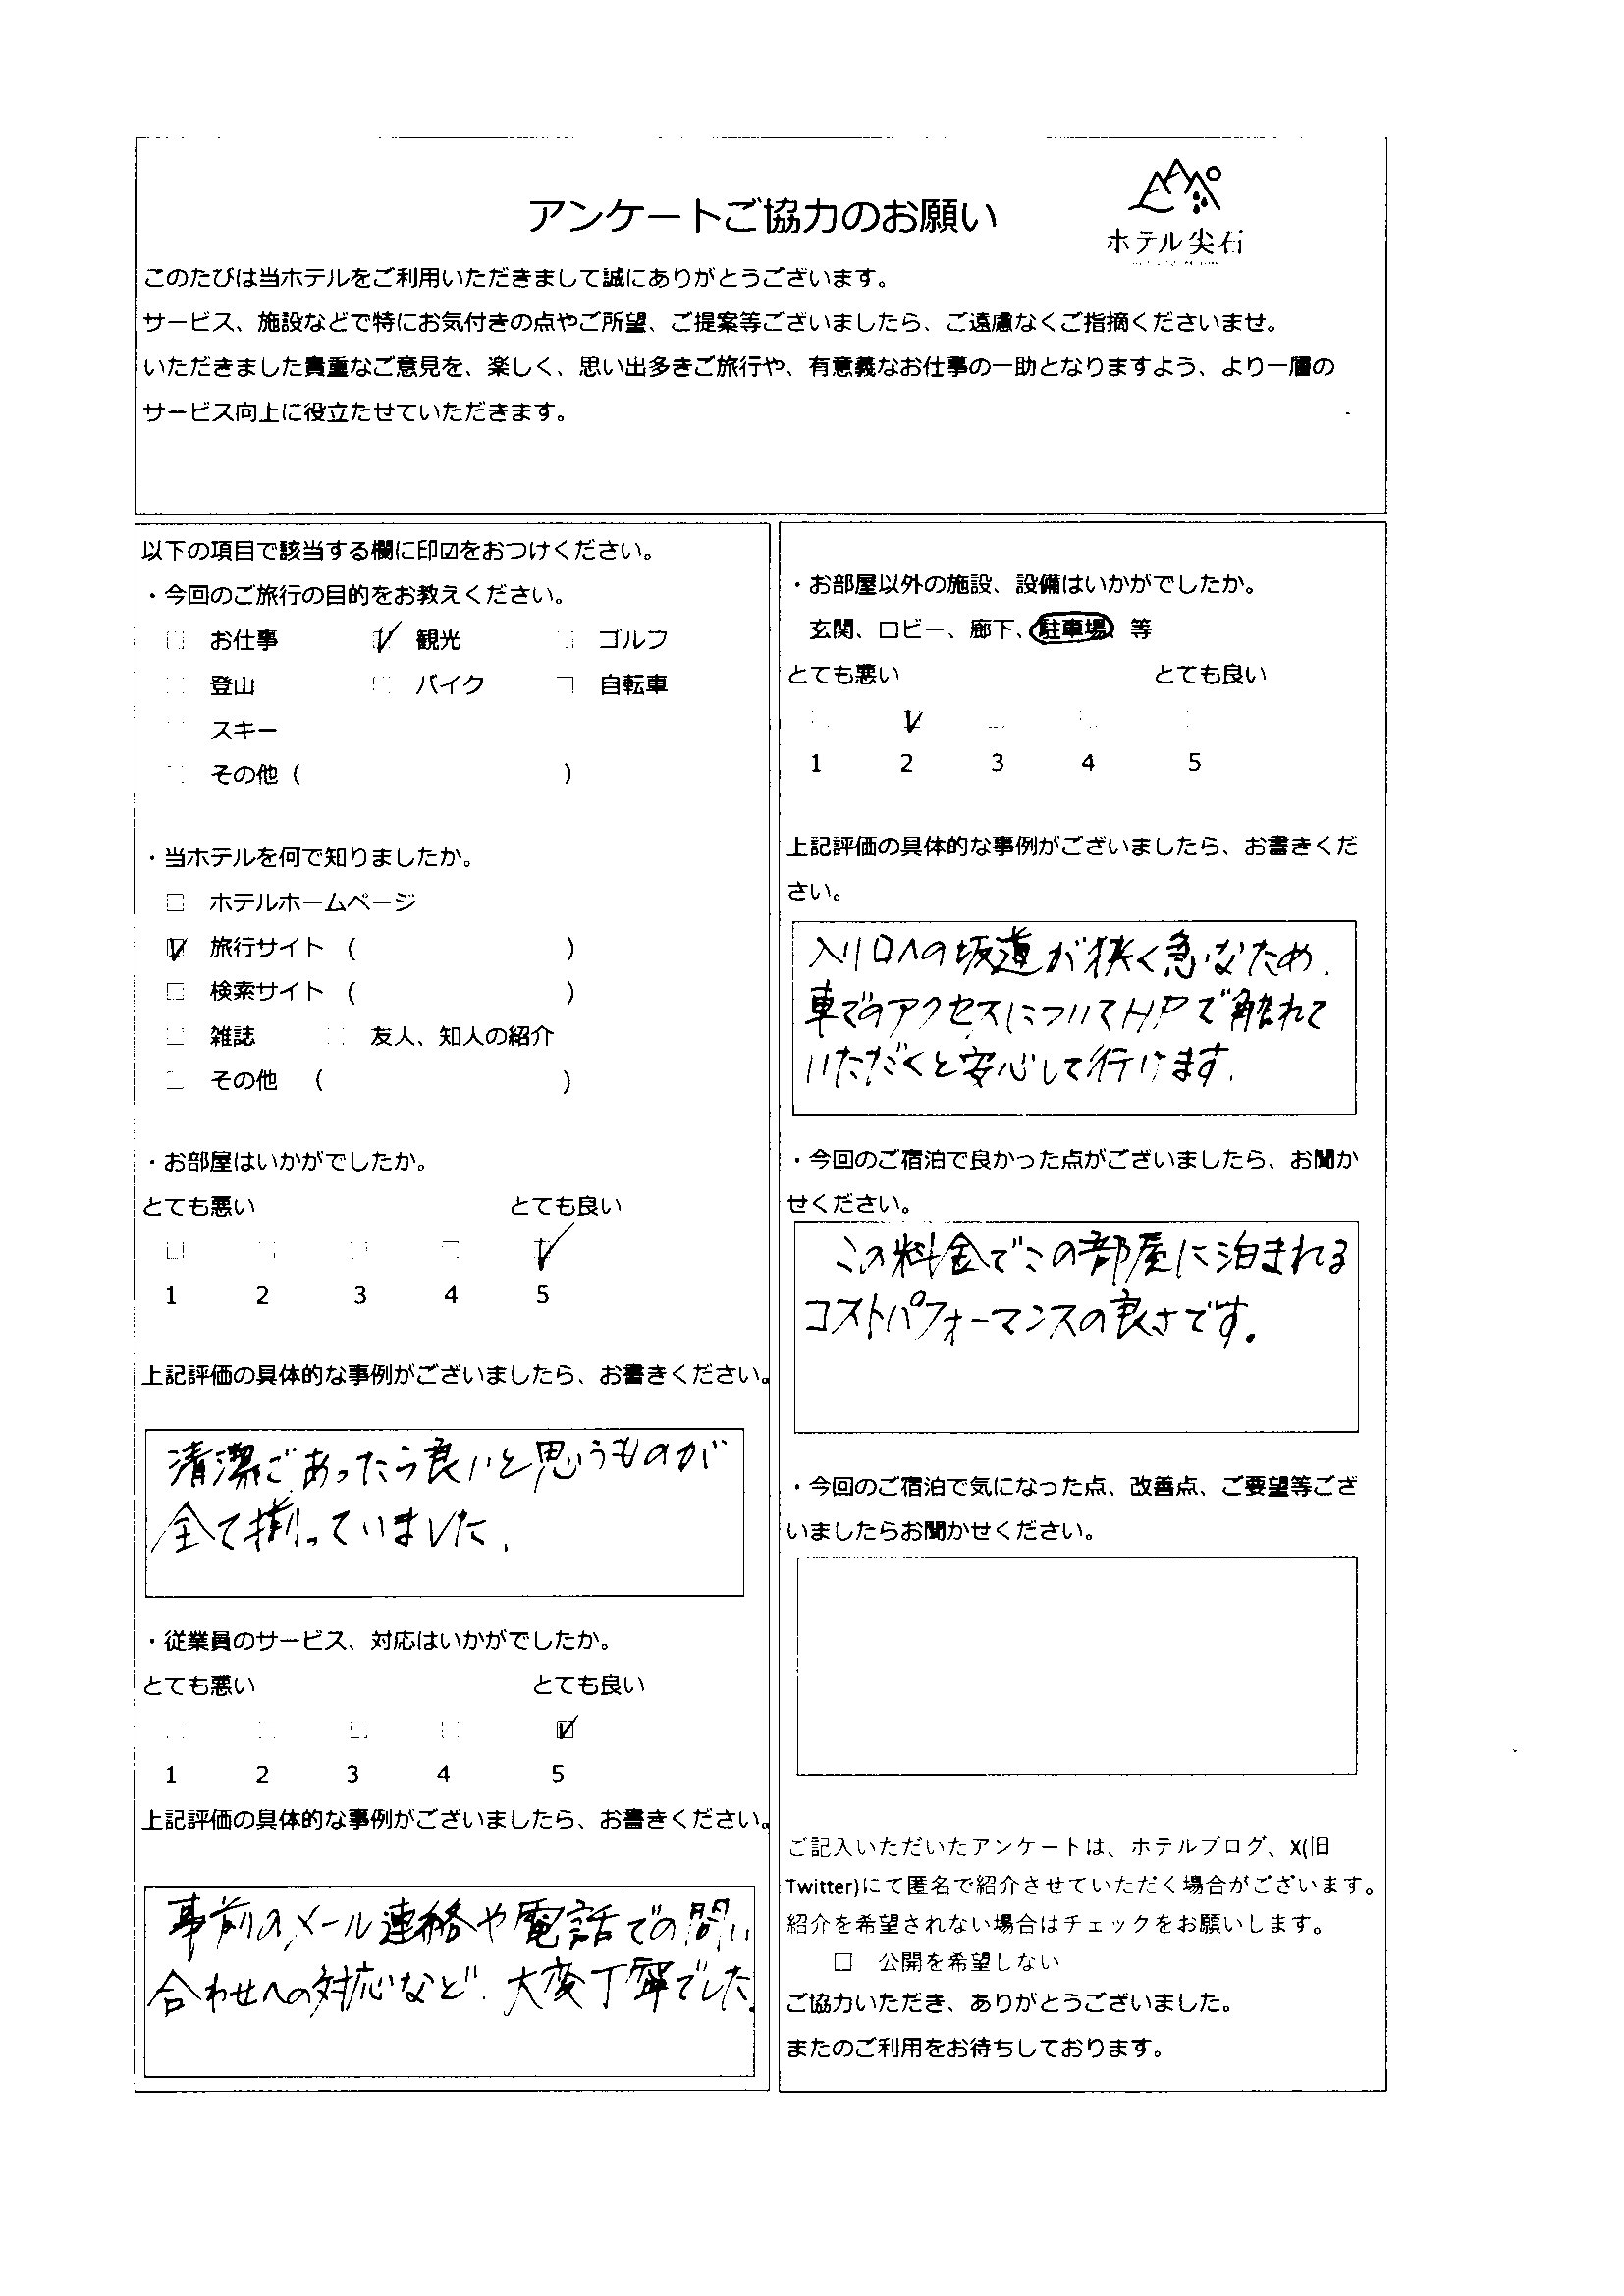 アンケートご協力のお願い
ホテル尖石
このたびは当ホテルをご利用いただきまして誠にありがとうございます。
サービス、施設などで特にお気付きの点やご所望、ご提案等ございましたら、ご遠慮なくご指摘くださいませ。
いただきました貴重なご意見を、楽しく、思い出多きご旅行や、有意義なお仕事の一助となりますよう、より一層の
サービス向上に役立たせていただきます。
以下の項目で該当する欄に印☑をおつけください。
・今回のご旅行の目的をお教えください。
□ お仕事 ☑ 観光 □ ゴルフ
□ 登山 □ バイク □ 自転車
□ スキー
□ その他 ( )
・当ホテルを何で知りましたか。
□ ホテルホームページ
☑ 旅行サイト ( )
□ 検索サイト ( )
□ 雑誌 □ 友人、知人の紹介
□ その他 ( )
・お部屋はいかがでしたか。
とても悪い とても良い
□ □ □ □ ☑
1 2 3 4 5
上記評価の具体的な事例がございましたら、お書きください。
清潔であったら良いと思うものが
全て揃っていました.
・従業員のサービス、対応はいかがでしたか。
とても悪い とても良い
□ □ □ □ ☑
1 2 3 4 5
上記評価の具体的な事例がございましたら、お書きください。
事前のメール連絡や電話での問い
合わせへの対応など、大変丁寧でした.
・お部屋以外の施設、設備はいかがでしたか。
玄関、ロビー、廊下、駐車場、等
とても悪い とても良い
□ ☑ □ □ □
1 2 3 4 5
上記評価の具体的な事例がございましたら、お書きくだ
さい。
入り口への坂道が狭く急なため.
車でのアクセスについてH.Pで触れて
いただくと安心して行けます.
・今回のご宿泊で良かった点がございましたら、お聞か
せください。
この料金でこの部屋に泊まれる
コストパフォーマンスの良さです。
・今回のご宿泊で気になった点、改善点、ご要望等ござ
いましたらお聞かせください。
ご記入いただいたアンケートは、ホテルブログ、X(旧
Twitter)にて匿名で紹介させていただく場合がございます。
紹介を希望されない場合はチェックをお願いします。
□ 公開を希望しない
ご協力いただき、ありがとうございました。
またのご利用をお待ちしております。